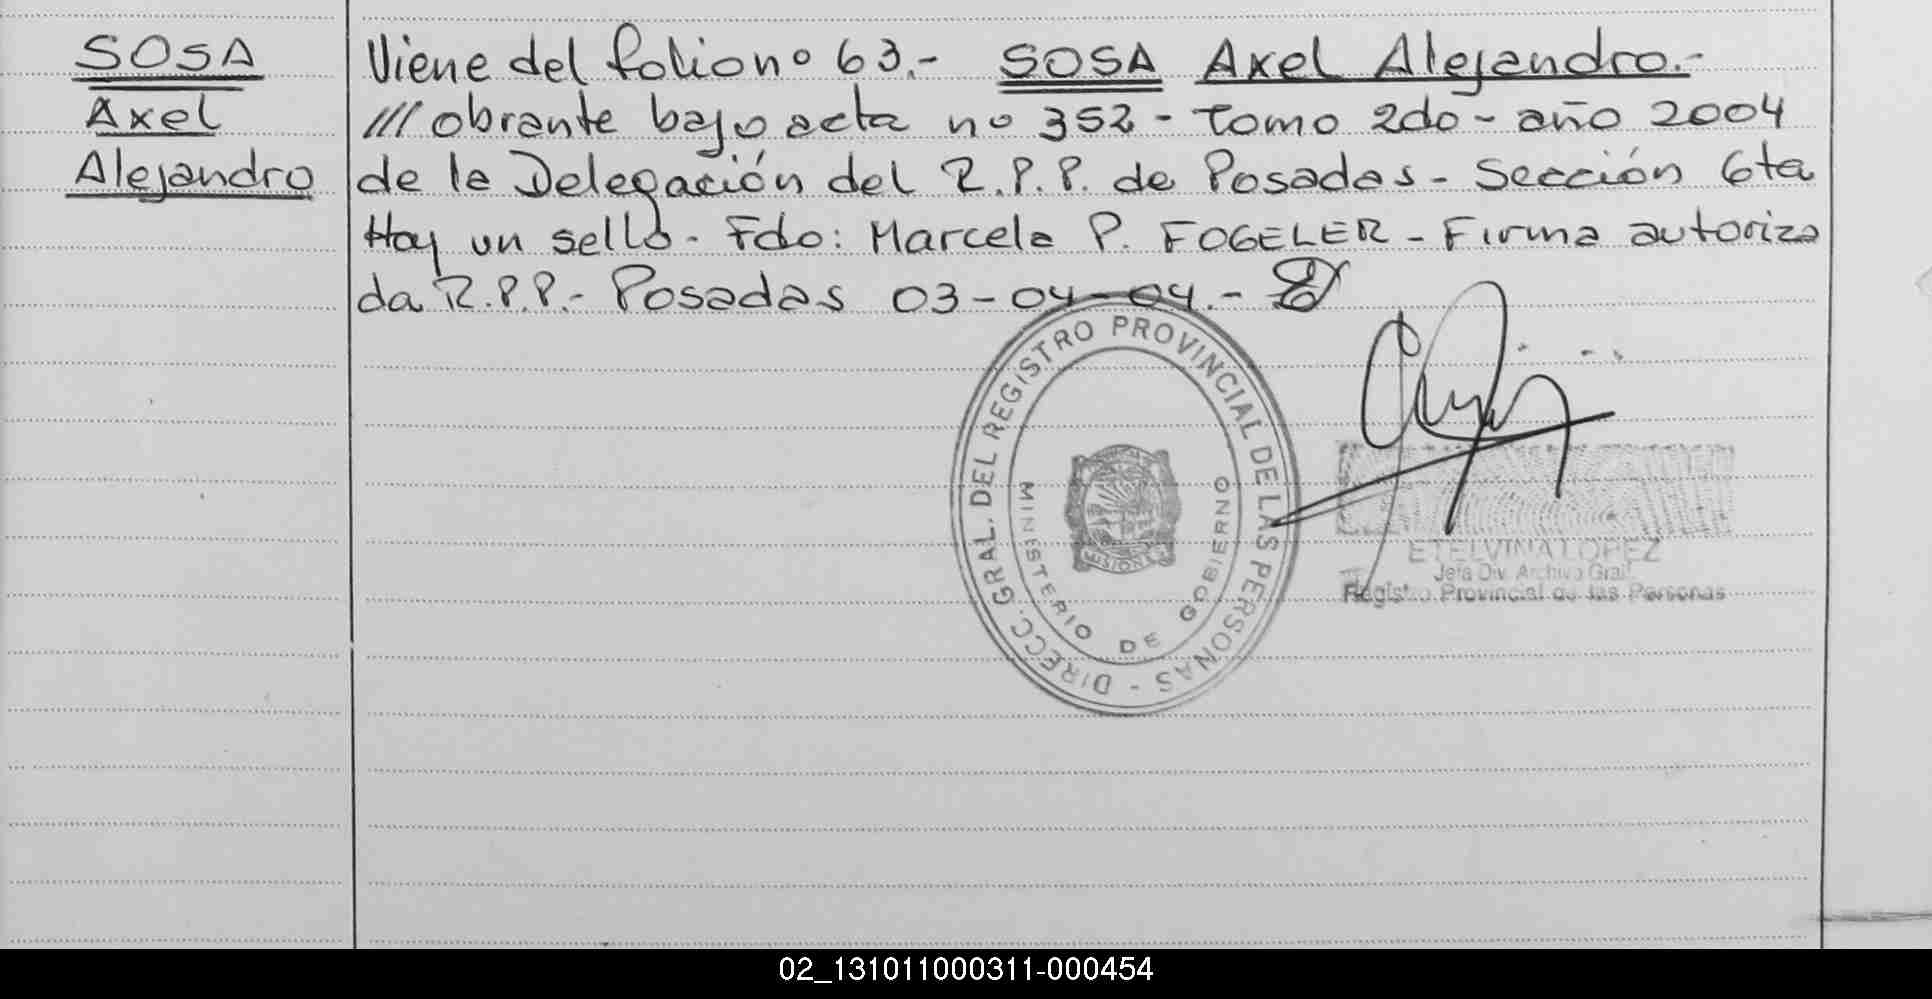 SOSA
Axel
Alejandro
Viene del folio nº 63.- SOSA Axel Alejandro.-
/// obrante bajo acta nº 352 - tomo 2do - año 2004
de la Delegación del R.P.P. de Posadas - Sección 6ta
Hay un sello. Fdo: Marcela P. FOGELER - Firma autoriza
da R.P.P.- Posadas 03-04-04.-
DIRECC. GRAL. DEL REGISTRO PROVINCIAL DE LAS PERSONAS -
MINISTERIO DE GOBIERNO
MISIONES
ETELVINA LOPEZ
Jefa Div. Archivo Gral.
Registro Provincial de las Personas
02_131011000311-000454